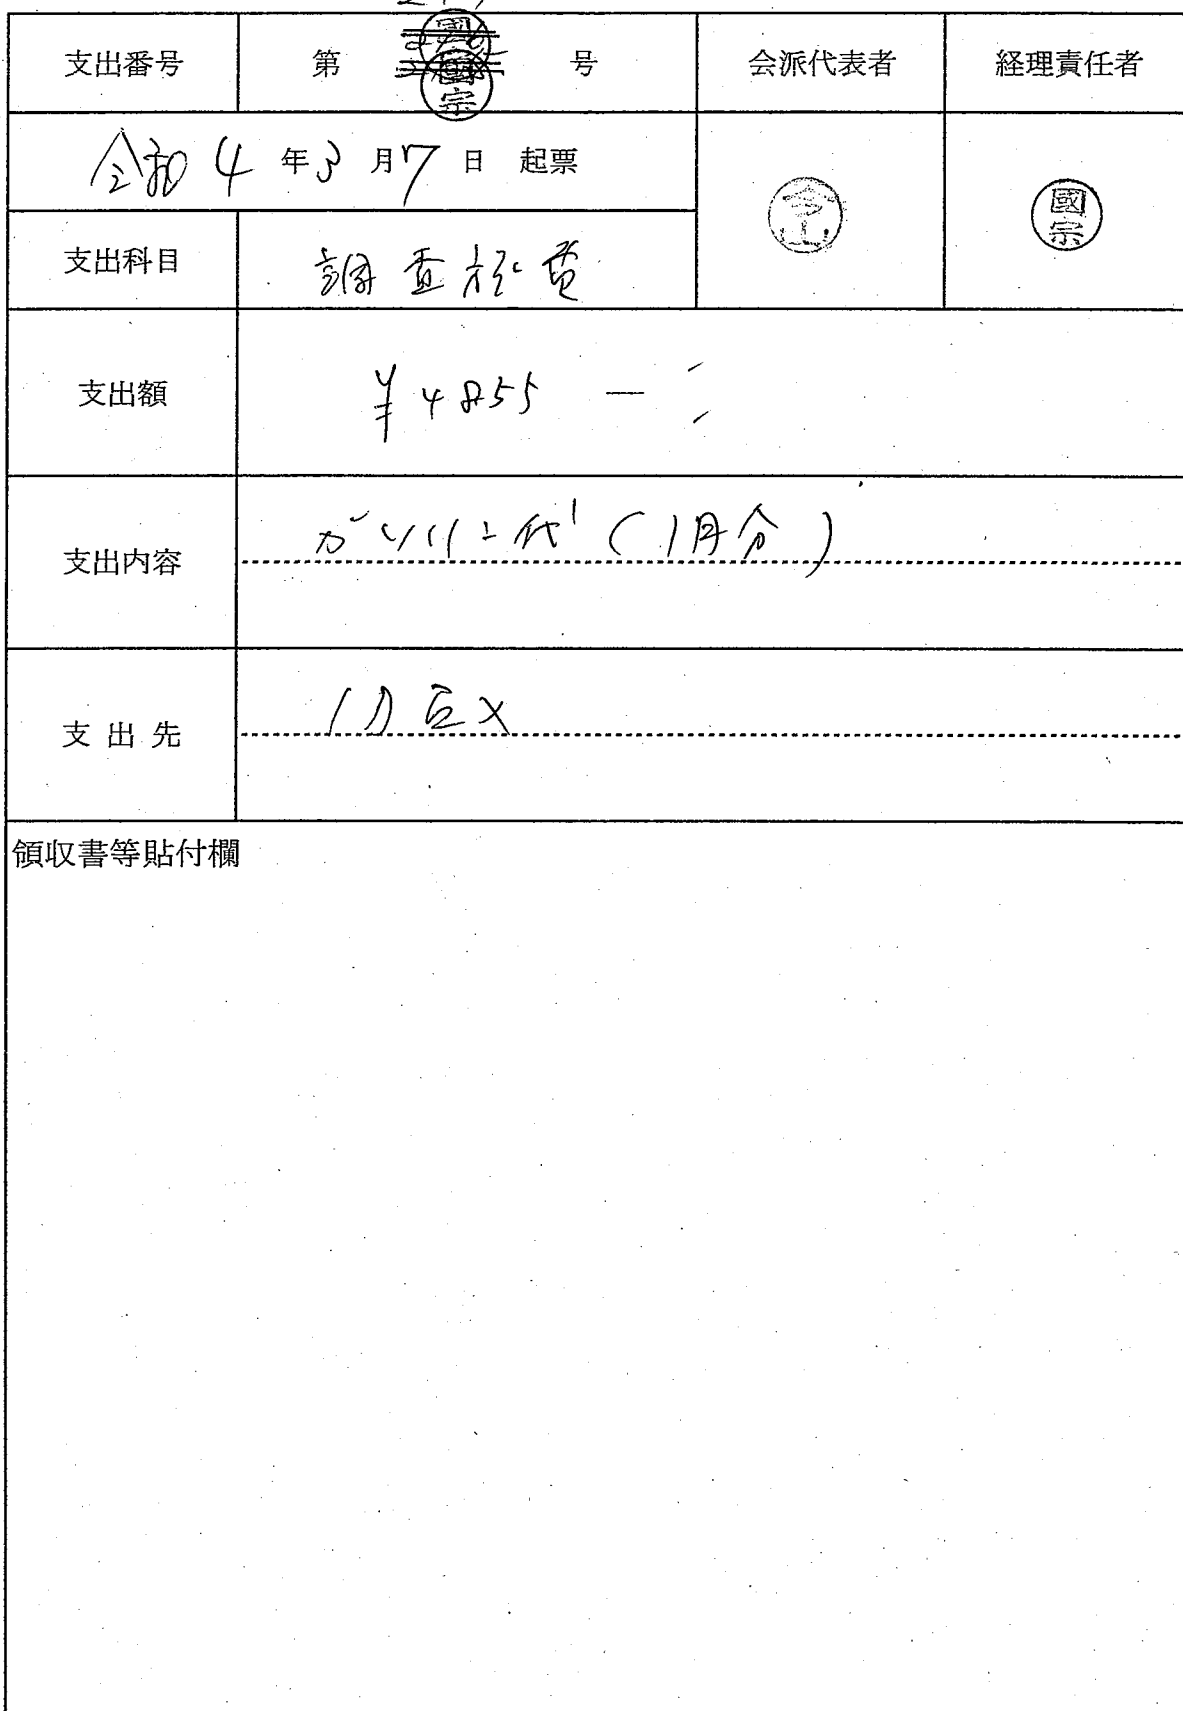 支出番号 第 号 会派代表者 経理責任者
國宗
令和 4 年 3 月 7 日 起票
國宗
支出科目 調査旅費
支出額 ¥4855 ー
支出内容 ガソリン代 (1月分)
支出先
領収書等貼付欄